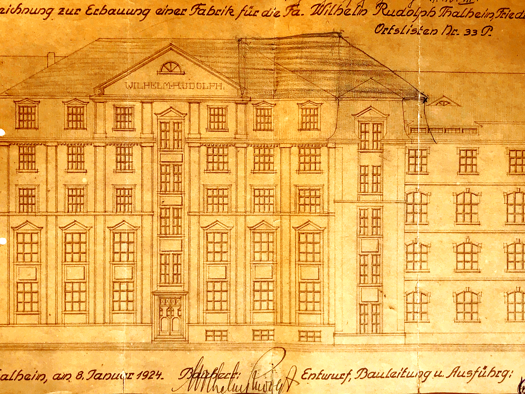 zeichnung zur Erbauung einer Fabrik für die Fa. Wilhelm Rudolph Thalhein, Friede
Ortslisten Nr. 33 P.
WILHELM RUDOLPH.
alhein, am 8. Januar 1924. Bauherr: Entwurf, Bauleitung u. Ausführg: